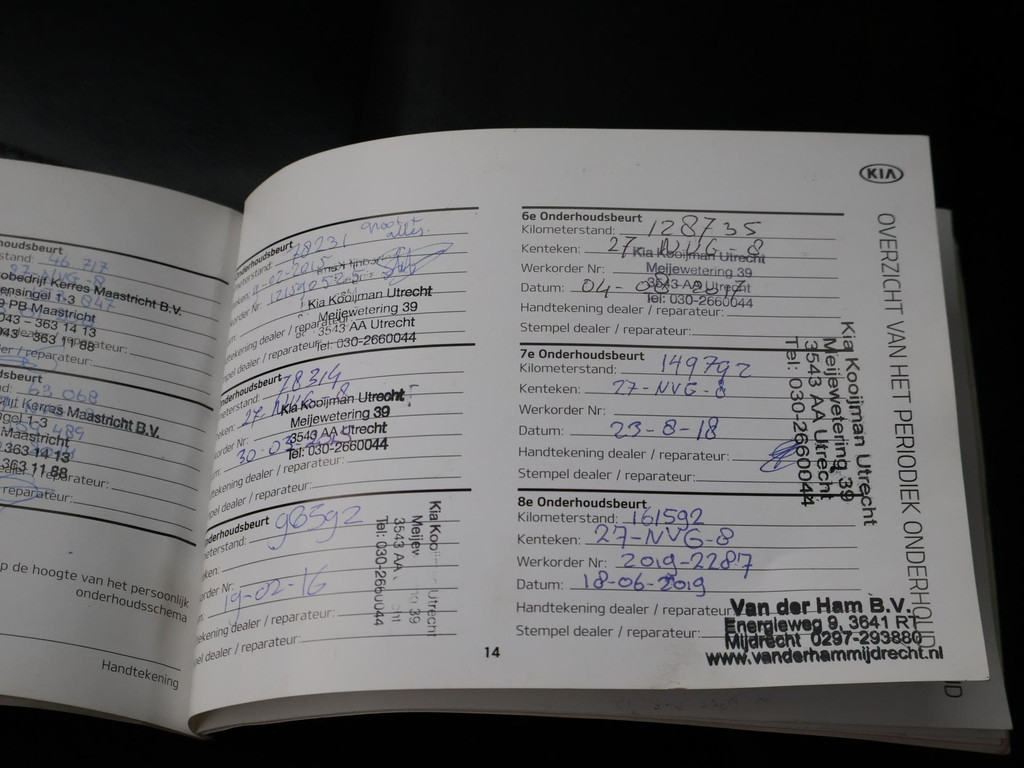 houdsbeurt
stand: 46 717
obedrijf Kerres Maastricht B.V.
ensingel 1-3
PB Maastricht
043 - 363 14 13
043 - 363 11 88
er / reparateur:
dsbeurt
nd: 63 068
Kerres Maastricht B.V.
ngel 1-3
Maastricht
363 14 13
363 11 88
reparateur:
p de hoogte van het persoonlijk
onderhoudsschema
Handtekening
nderhoudsbeurt
meterstand: 78231
groot
alles.
Kia Kooijman Utrecht
Meijewetering 39
3543 AA Utrecht
Tel: 030-2660044
tekening dealer / reparateur:
pel dealer / reparateur:
nderhoudsbeurt
meterstand: 78314
eken: 27-NVG-8
Kia Kooijman Utrecht
Meijewetering 39
3543 AA Utrecht
Tel: 030-2660044
korder Nr:
tekening dealer / reparateur:
pel dealer / reparateur:
nderhoudsbeurt
eterstand: 98392
eken:
korder Nr:
19-02-16
tekening dealer / reparateur:
pel dealer / reparateur:
Kia Koo Utrecht
Meijew 39
3543 AA
Tel: 030-2660044
14
KIA
OVERZICHT VAN HET PERIODIEK ONDERHOUD
6e Onderhoudsbeurt
Kilometerstand: 128735
Kenteken: 27-NVG-8
Kia Kooijman Utrecht
Werkorder Nr:
Meijewetering 39
Datum: 04-08-2017
3543 AA Utrecht
Tel: 030-2660044
Handtekening dealer / reparateur:
Stempel dealer / reparateur:
7e Onderhoudsbeurt
Kilometerstand: 149792
Kenteken: 27-NVG-8
Werkorder Nr:
Datum: 23-8-18
Handtekening dealer / reparateur:
Stempel dealer / reparateur:
Kia Kooijman Utrecht
Meijewetering 39
3543 AA Utrecht
Tel: 030-2660044
8e Onderhoudsbeurt
Kilometerstand: 161592
Kenteken: 27-NVG-8
Werkorder Nr: 2019-2287
Datum: 18-06-2019
Handtekening dealer / reparateur:
Stempel dealer / reparateur:
Van der Ham B.V.
Energieweg 9, 3641 RT
Mijdrecht 0297-293880
www.vanderhammijdrecht.nl